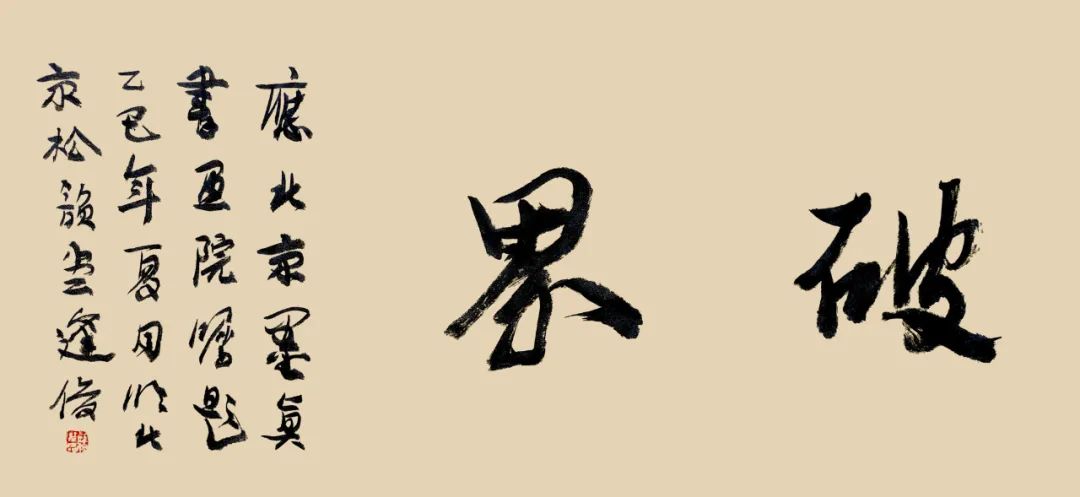 破界
應北京墨真
書画院嘱題
乙巳年夏月於北
京松韻堂逢俊